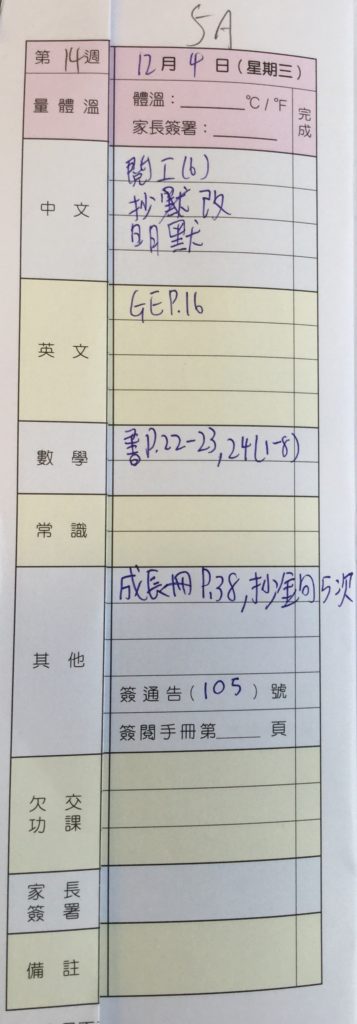 5A
第14週 12月4日(星期三)
量體溫 體溫：______℃/℉ 完成
家長簽署：______
中文 閱工(6)
抄默改
明默
英文 GE P.16
數學 書P.22-23,24(1-8)
常識
其他 成長冊 P.38,抄金句5次
簽通告(105)號
簽閱手冊第____頁
欠交功課
家長簽署
備註